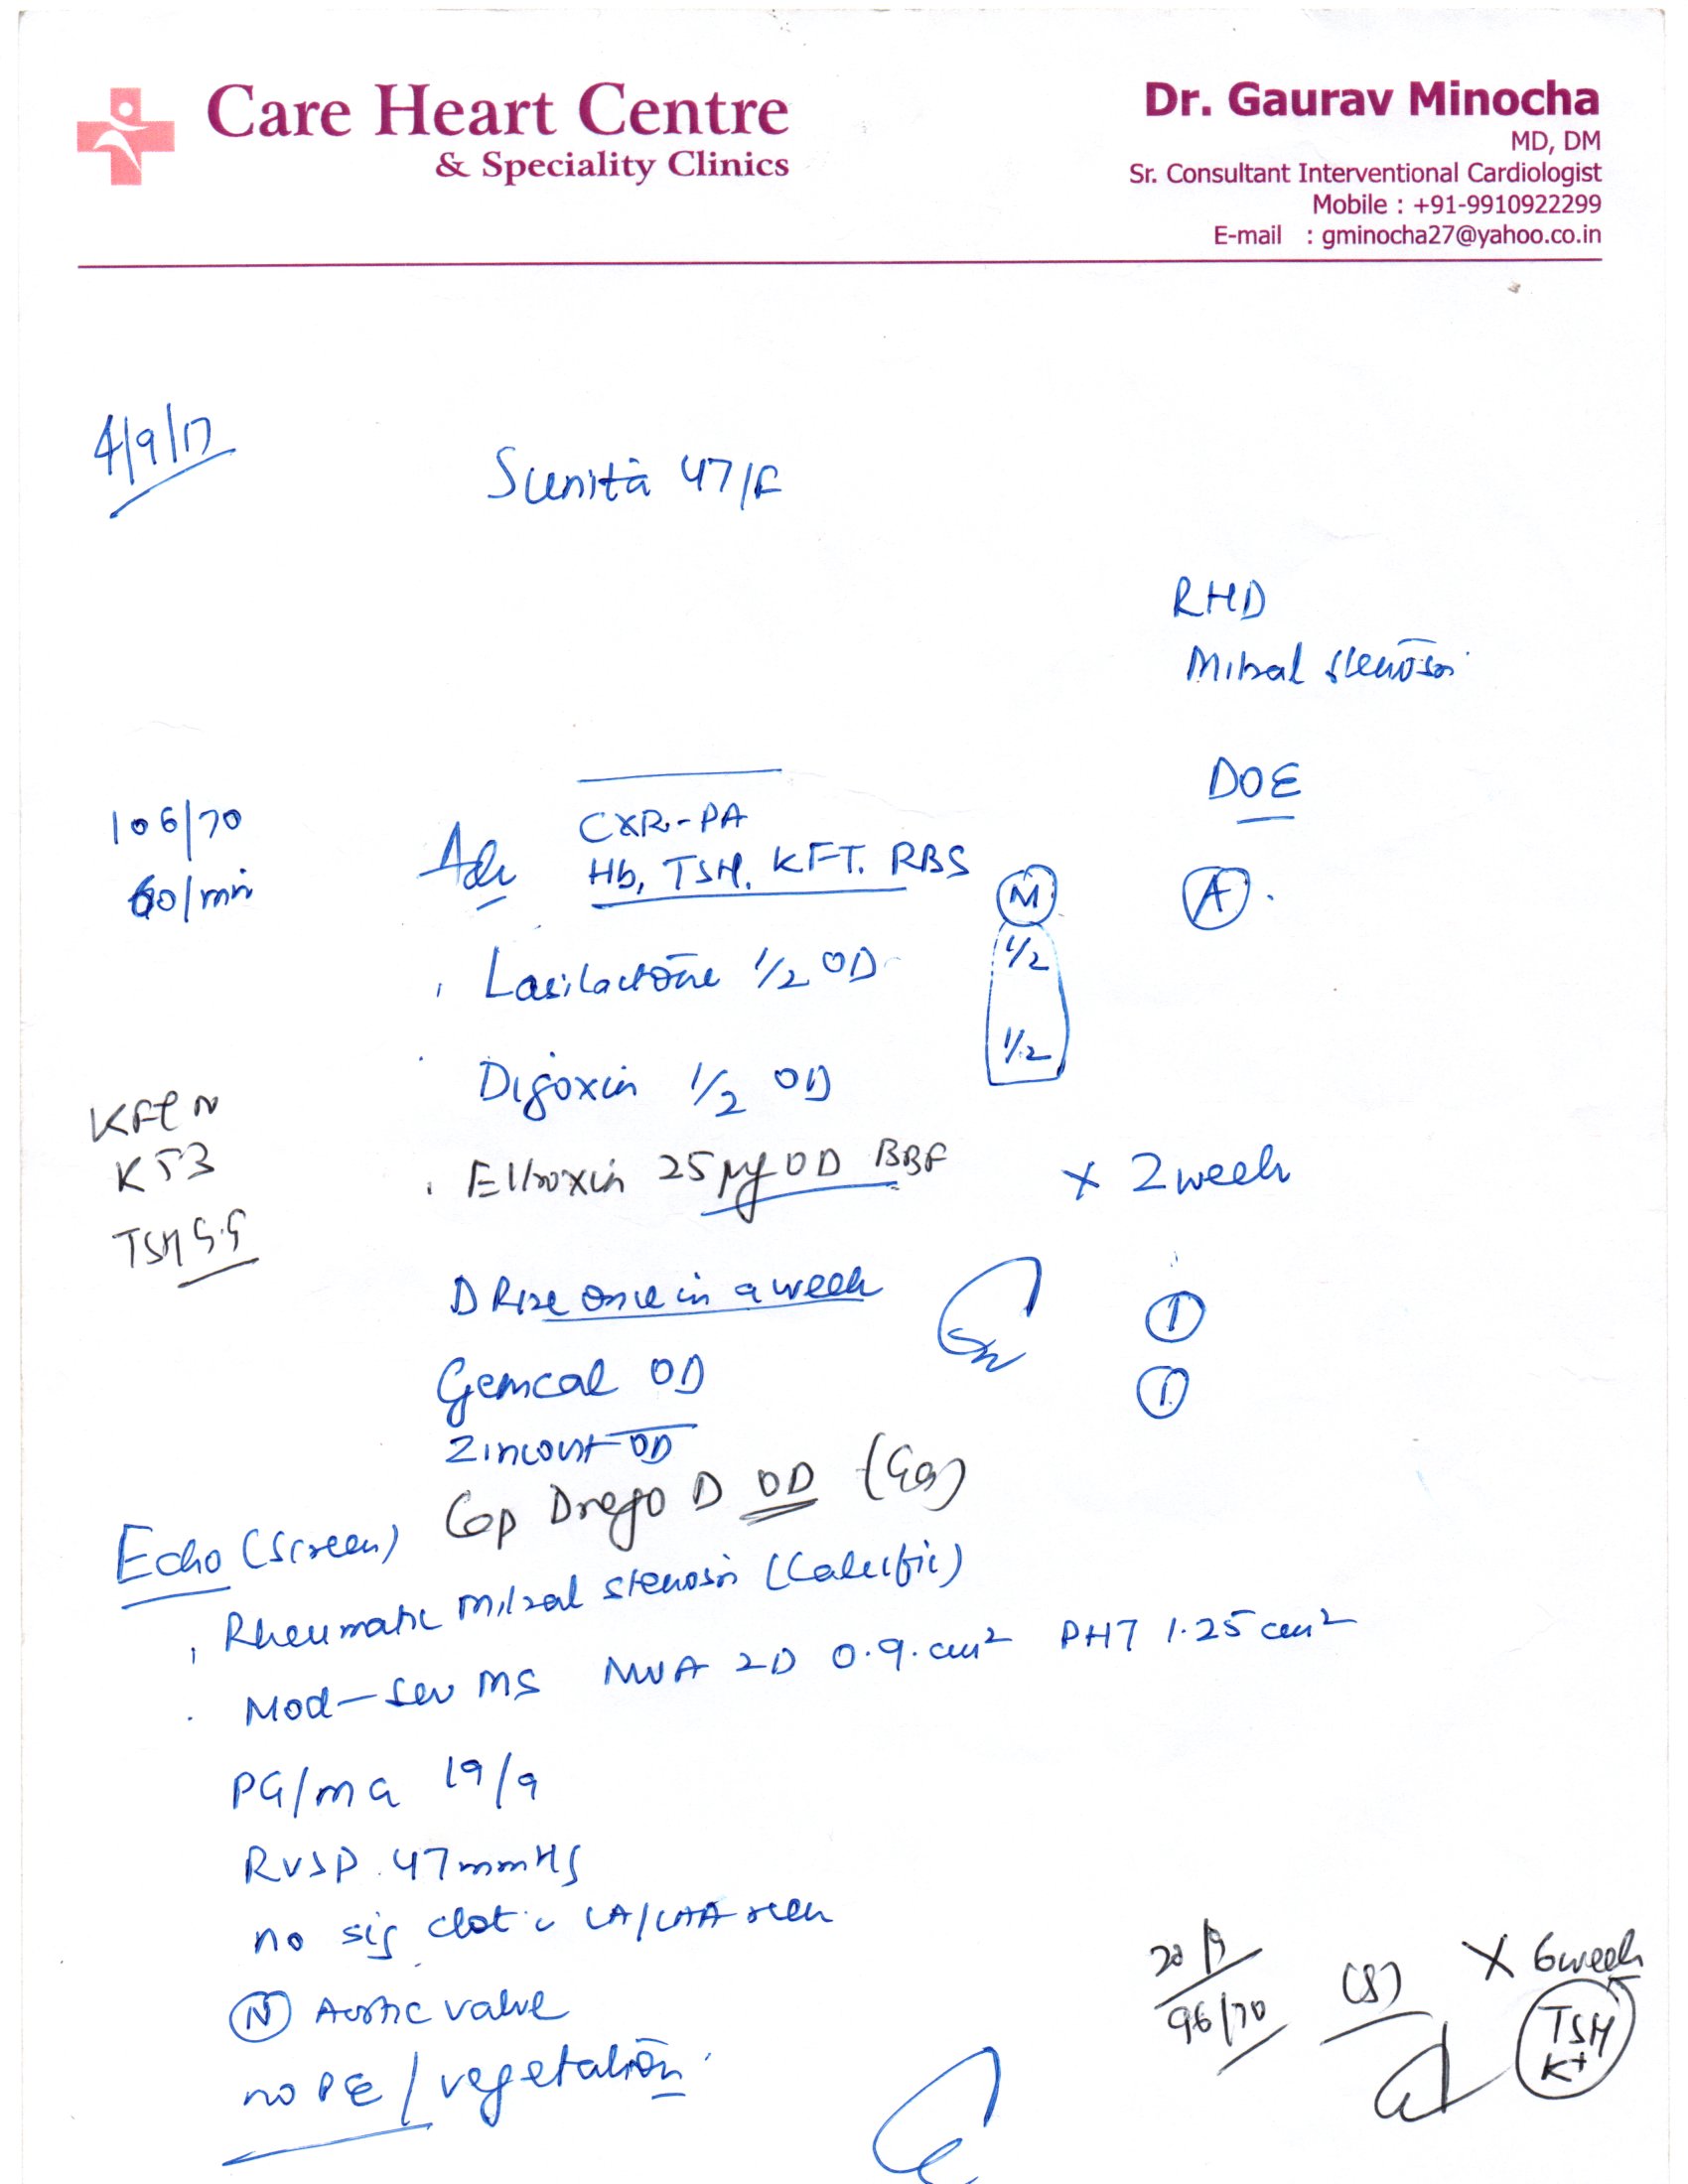 Care Heart Centre
& Speciality Clinics
Dr. Gaurav Minocha
MD, DM
Sr. Consultant Interventional Cardiologist
Mobile : +91-9910922299
E-mail : gminocha27@yahoo.co.in
4/9/17
Sunita 47/F
RHD
Mitral stenosis
DOE
106/70
60/min
Adv
CXR-PA
Hb, TSH, KFT. RBS
M
A
Lasilactone 1/2 OD
1/2
Digoxin 1/2 OD
1/2
KFT N
K 5.3
TSH 5.5
Eltroxin 25 µg OD BBF
x 2 week
D Rise once in a week
1
Gemcal OD
1
Zincovit OD
Cap Drego D OD
Echo (Screen)
Rheumatic mitral stenosis (Calcific)
Mod-Sev MS MVA 2D 0.9.cm² PHT 1.25 cm²
PG/MG 19/9
RVSP 47mmHg
no sig clot in LA/LAA seen
N Aortic valve
no PE / vegetation
20/9
96/70
(S)
X 6week
TSH
K+